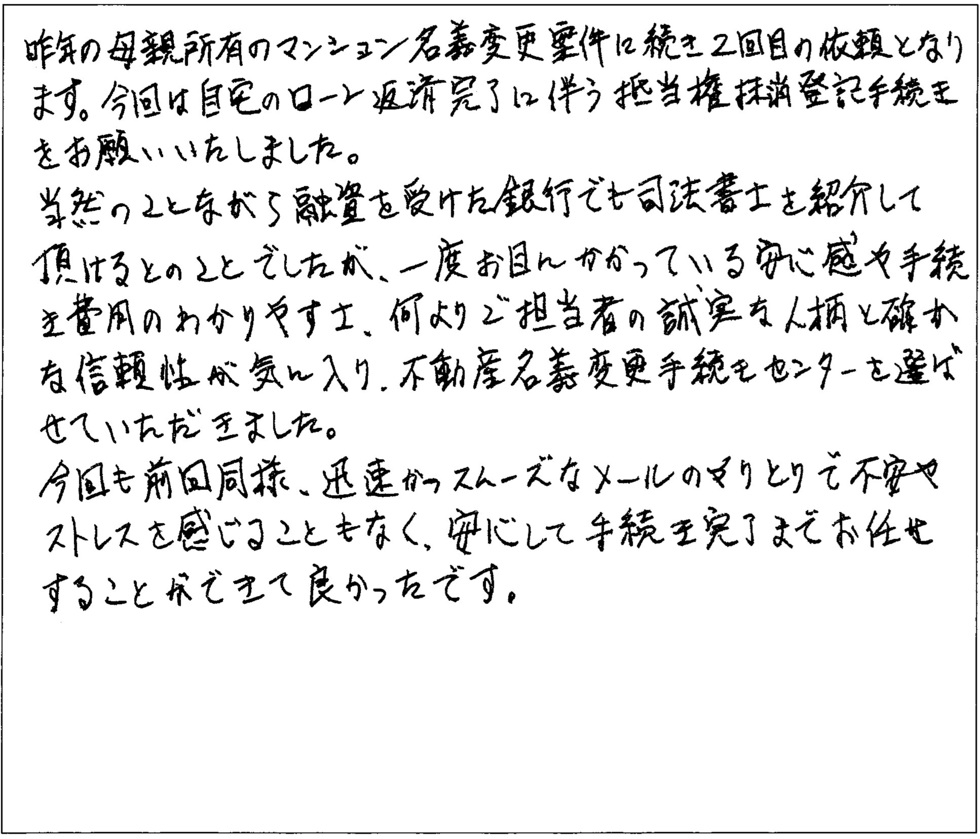 昨年の母親所有のマンション名義変更案件に続き2回目の依頼となり
ます。今回は自宅のローン返済完了に伴う抵当権抹消登記手続き
をお願いいたしました。
当然のことながら融資を受けた銀行でも司法書士を紹介して
頂けるとのことでしたが、一度お目にかかっている安心感や手続
き費用のわかりやすさ、何よりご担当者の誠実な人柄と確か
な信頼性が気に入り、不動産名義変更手続きセンターを選ば
せていただきました。
今回も前回同様、迅速かつスムーズなメールのやりとりで不安や
ストレスを感じることもなく、安心して手続き完了までお任せ
することができて良かったです。